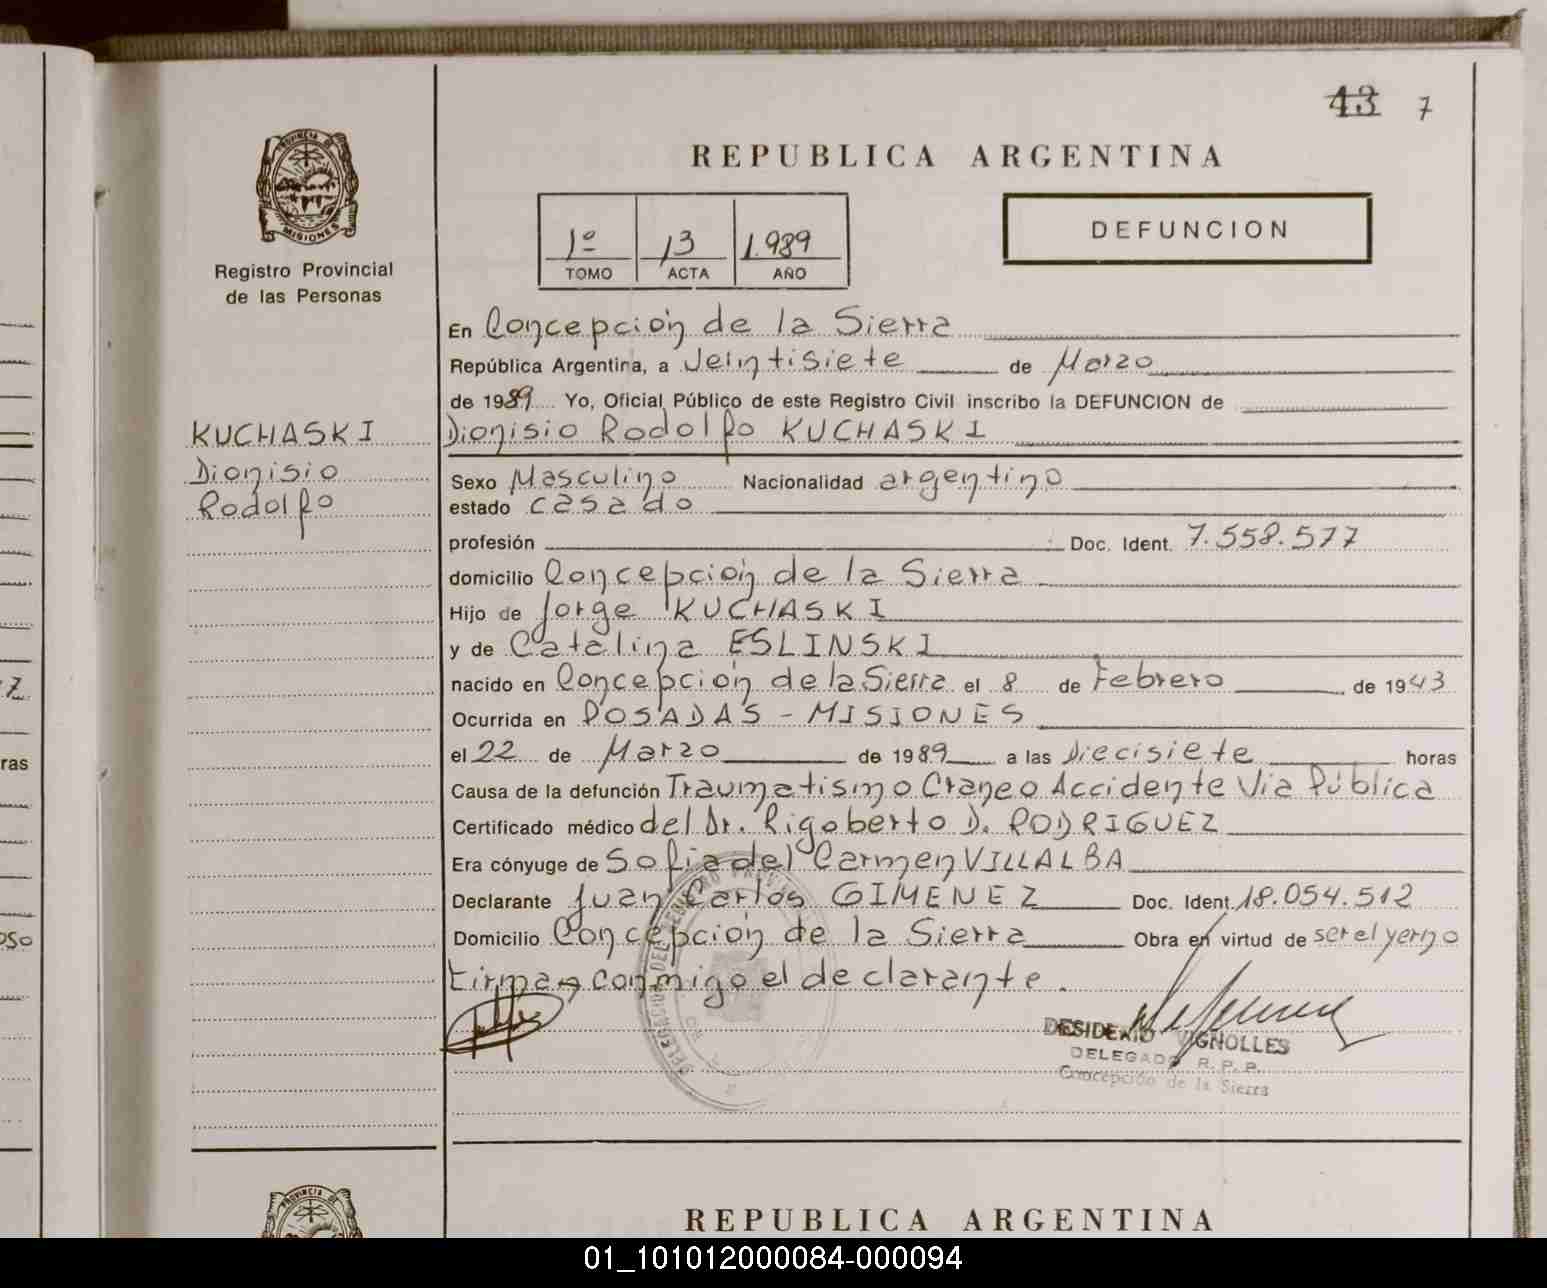 43 7
REPUBLICA ARGENTINA
PROVINCIA DE
MISIONES
Registro Provincial
de las Personas
1º 13 1.989
TOMO ACTA AÑO
DEFUNCION
En Concepción de la Sierra
República Argentina, a Veintisiete de Marzo
de 1989 Yo, Oficial Público de este Registro Civil inscribo la DEFUNCION de
KUCHASKI
Dionisio
Rodolfo
Dionisio Rodolfo KUCHASKI
Sexo Masculino Nacionalidad argentino
estado casado
profesión Doc. Ident. 7.558.577
domicilio Concepción de la Sierra
Hijo de Jorge KUCHASKI
y de Catalina ESLINSKI
nacido en Concepción de la Sierra el 8 de Febrero de 1943
Ocurrida en POSADAS - MISIONES
el 22 de Marzo de 1989 a las Diecisiete horas
Causa de la defunción Traumatismo Craneo Accidente Via Pública
Certificado médico del Dr. Rigoberto D. RODRIGUEZ
Era cónyuge de Sofia del Carmen VILLALBA
Declarante Juan Carlos GIMENEZ Doc. Ident. 18.054.512
Domicilio Concepción de la Sierra Obra en virtud de ser el yerno
firman conmigo el declarante.
DESIDERIO VIGNOLLES
DELEGADO R. P. P.
Concepción de la Sierra
ras
oso
PROVINCIA DE
REPUBLICA ARGENTINA
01_101012000084-000094